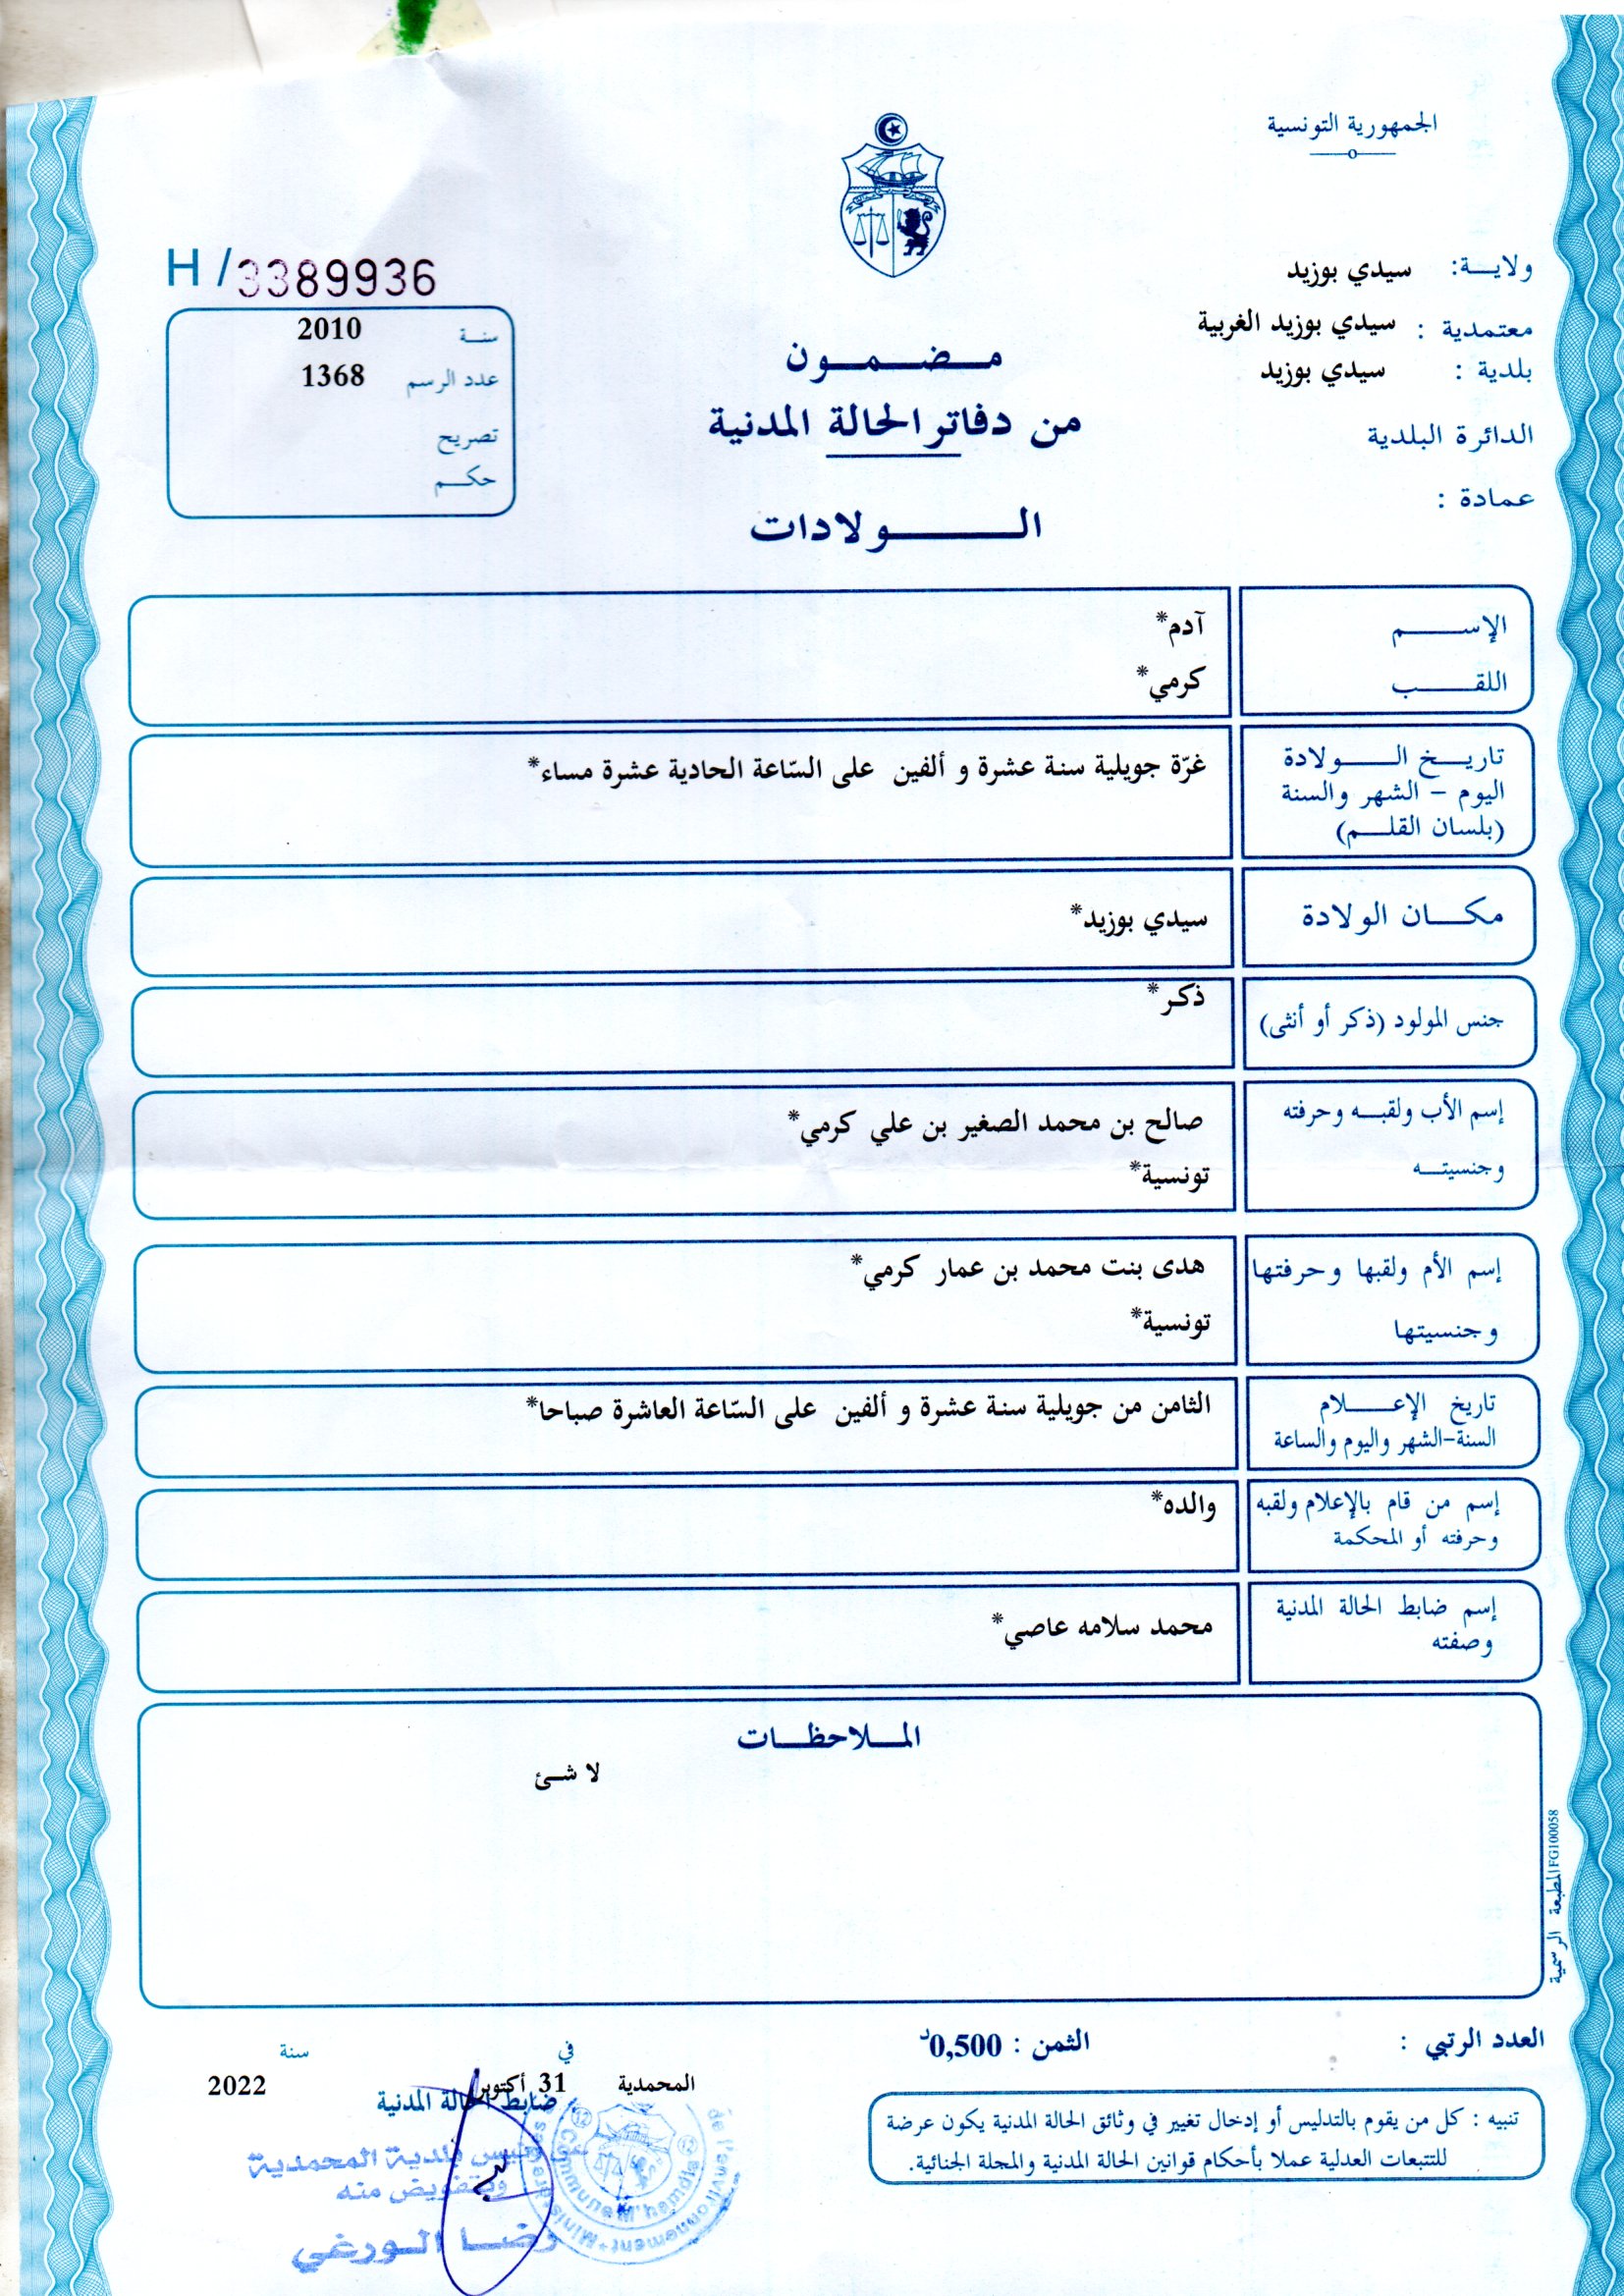 الجمهورية التونسية
ولاية: سيدي بوزيد
معتمدية : سيدي بوزيد الغربية
بلدية : سيدي بوزيد
الدائرة البلدية
عمادة :
مضمون
من دفاتر الحالة المدنية
الولادات
H/3389936
سنة 2010
عدد الرسم 1368
تصريح
حكم
الإسم آدم*
اللقب كرمي*
تاريخ الولادة
اليوم - الشهر والسنة
(بلسان القلم)
غرّة جويلية سنة عشرة و ألفين على السّاعة الحادية عشرة مساء*
مكان الولادة سيدي بوزيد*
جنس المولود (ذكر أو أنثى) ذكر*
إسم الأب ولقبه وحرفته صالح بن محمد الصغير بن علي كرمي*
وجنسيته تونسية*
إسم الأم ولقبها وحرفتها هدى بنت محمد بن عمار كرمي*
وجنسيتها تونسية*
تاريخ الإعلام
السنة-الشهر واليوم والساعة
الثامن من جويلية سنة عشرة و ألفين على السّاعة العاشرة صباحا*
إسم من قام بالإعلام ولقبه
وحرفته أو المحكمة
والده*
إسم ضابط الحالة المدنية
وصفته
محمد سلامه عاصي*
الملاحظات
لا شئ
المطبعة الرسمية FG100058
العدد الرتبي :
الثمن : 0,500د
تنبيه : كل من يقوم بالتدليس أو إدخال تغيير في وثائق الحالة المدنية يكون عرضة
للتتبعات العدلية عملا بأحكام قوانين الحالة المدنية والمجلة الجنائية.
في سنة
المحمدية 31 أكتوبر 2022
ضابط الحالة المدنية
رئيس بلدية المحمدية
وبتفويض منه
رضا الورغي